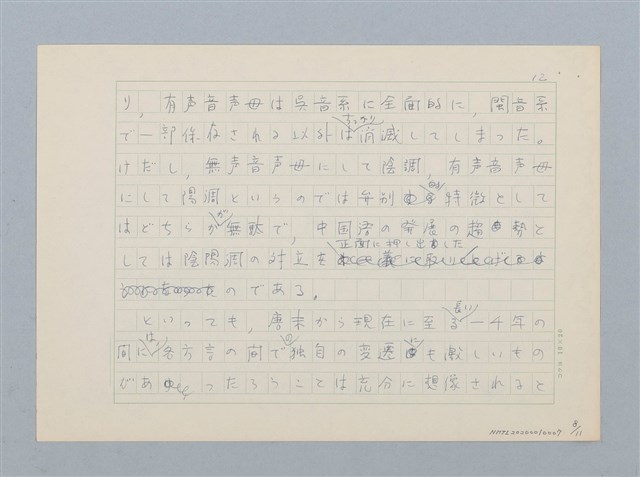 12
り，有声音声母は呉音系に全面的に，閩音系
すっかり
で一部保存される以外は消滅してしまった。
けだし，無声音声母にして陰調，有声音声母
的
にして陽調というのでは弁別特徴として
が
はどちらか無駄で，中国語の発展の趨勢と
正面に押し出した
しては陰陽調の対立を
のである。
長い
といっても，唐末から現在に至る一千年の
は， の
間に各方言の間で独自の変遷に も激しいもの
であったろうことは充分に想像されると
NMTL20200010007 8/11